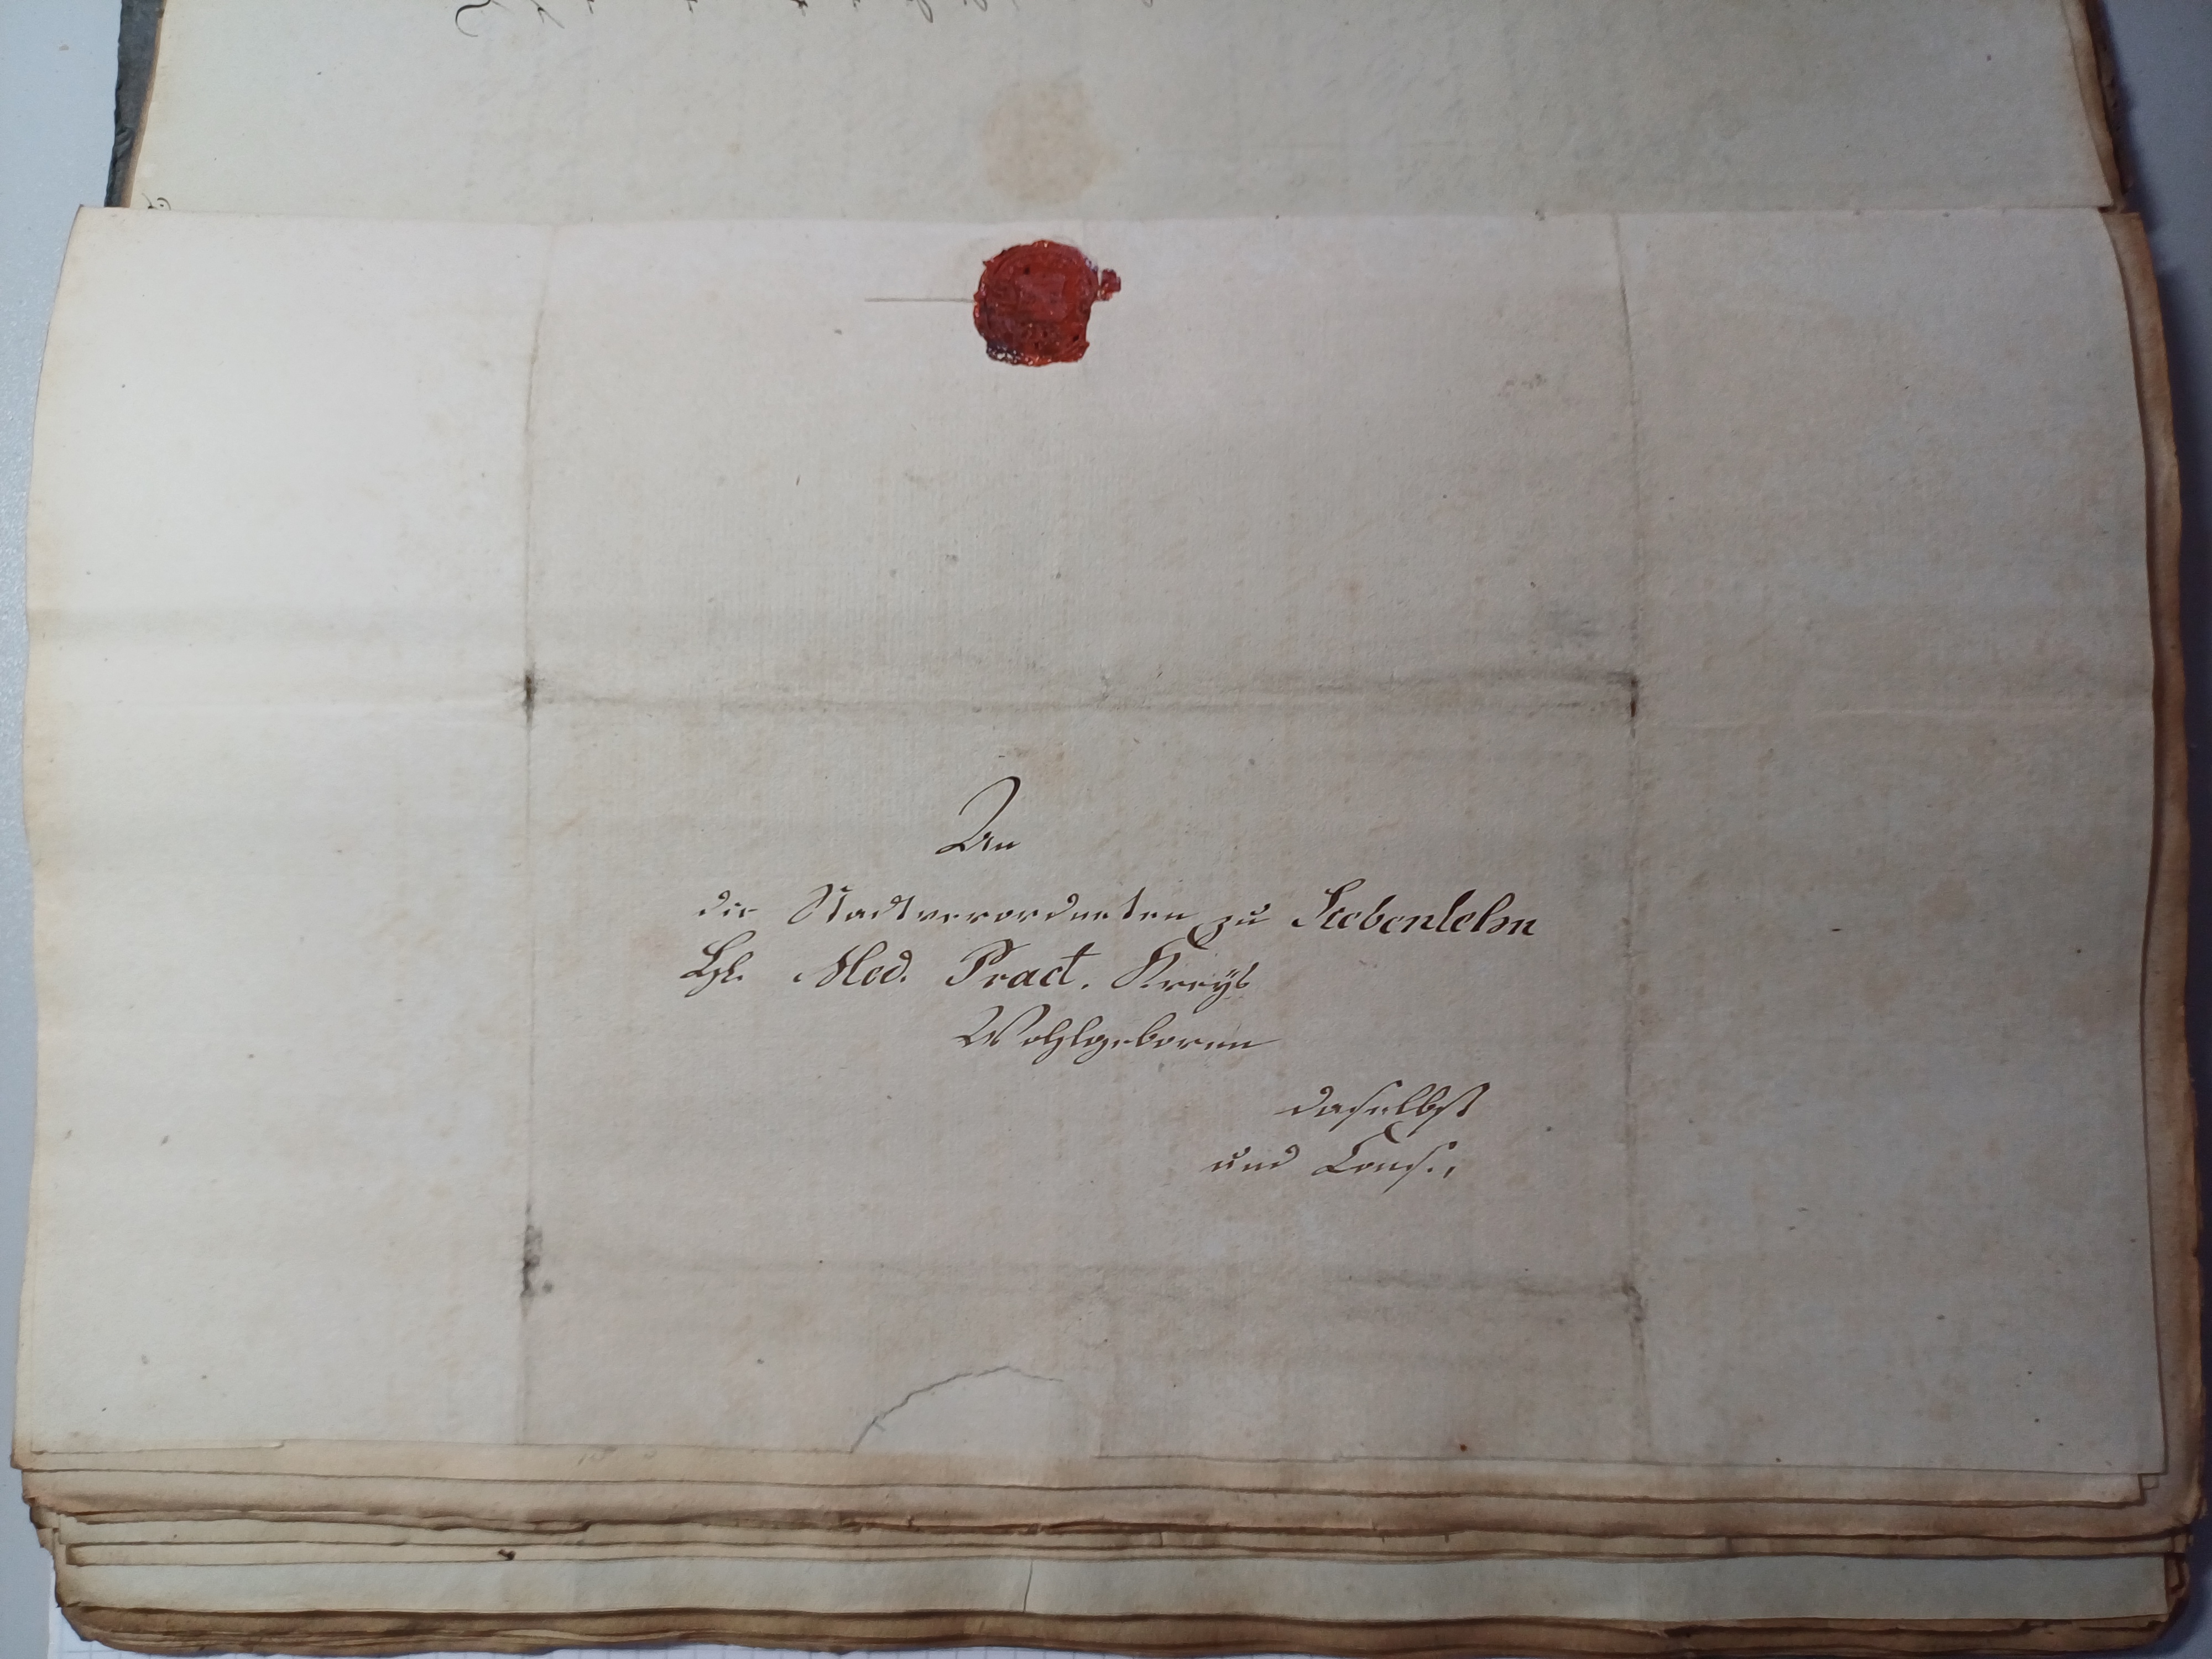 An
die Stadtverordneten zu Siebenlehn
Hr. Med. Pract. Kreyß
Wohlgeboren
daselbst
und Cons.,